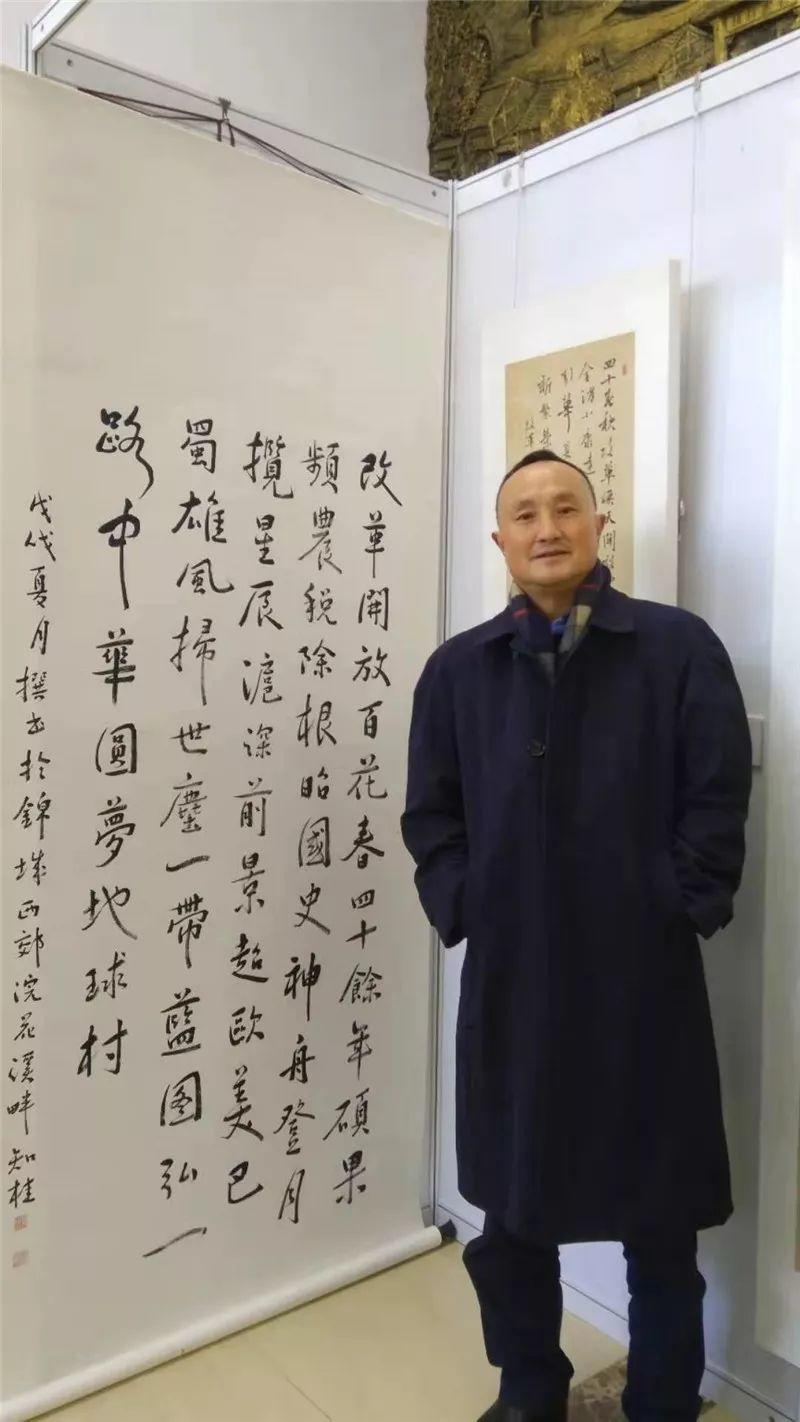 改革開放百花春四十餘年碩果
頻農税除根昭國史神舟登月
攬星辰滬深前景超歐美巴
蜀雄風掃世塵一帶藍图弘一
路中華圓夢地球村
戊戌夏月撰书於錦城西郊浣花溪畔知桂
四十春秋改革煥天開
全涝小康
引華
新繁榮
改革